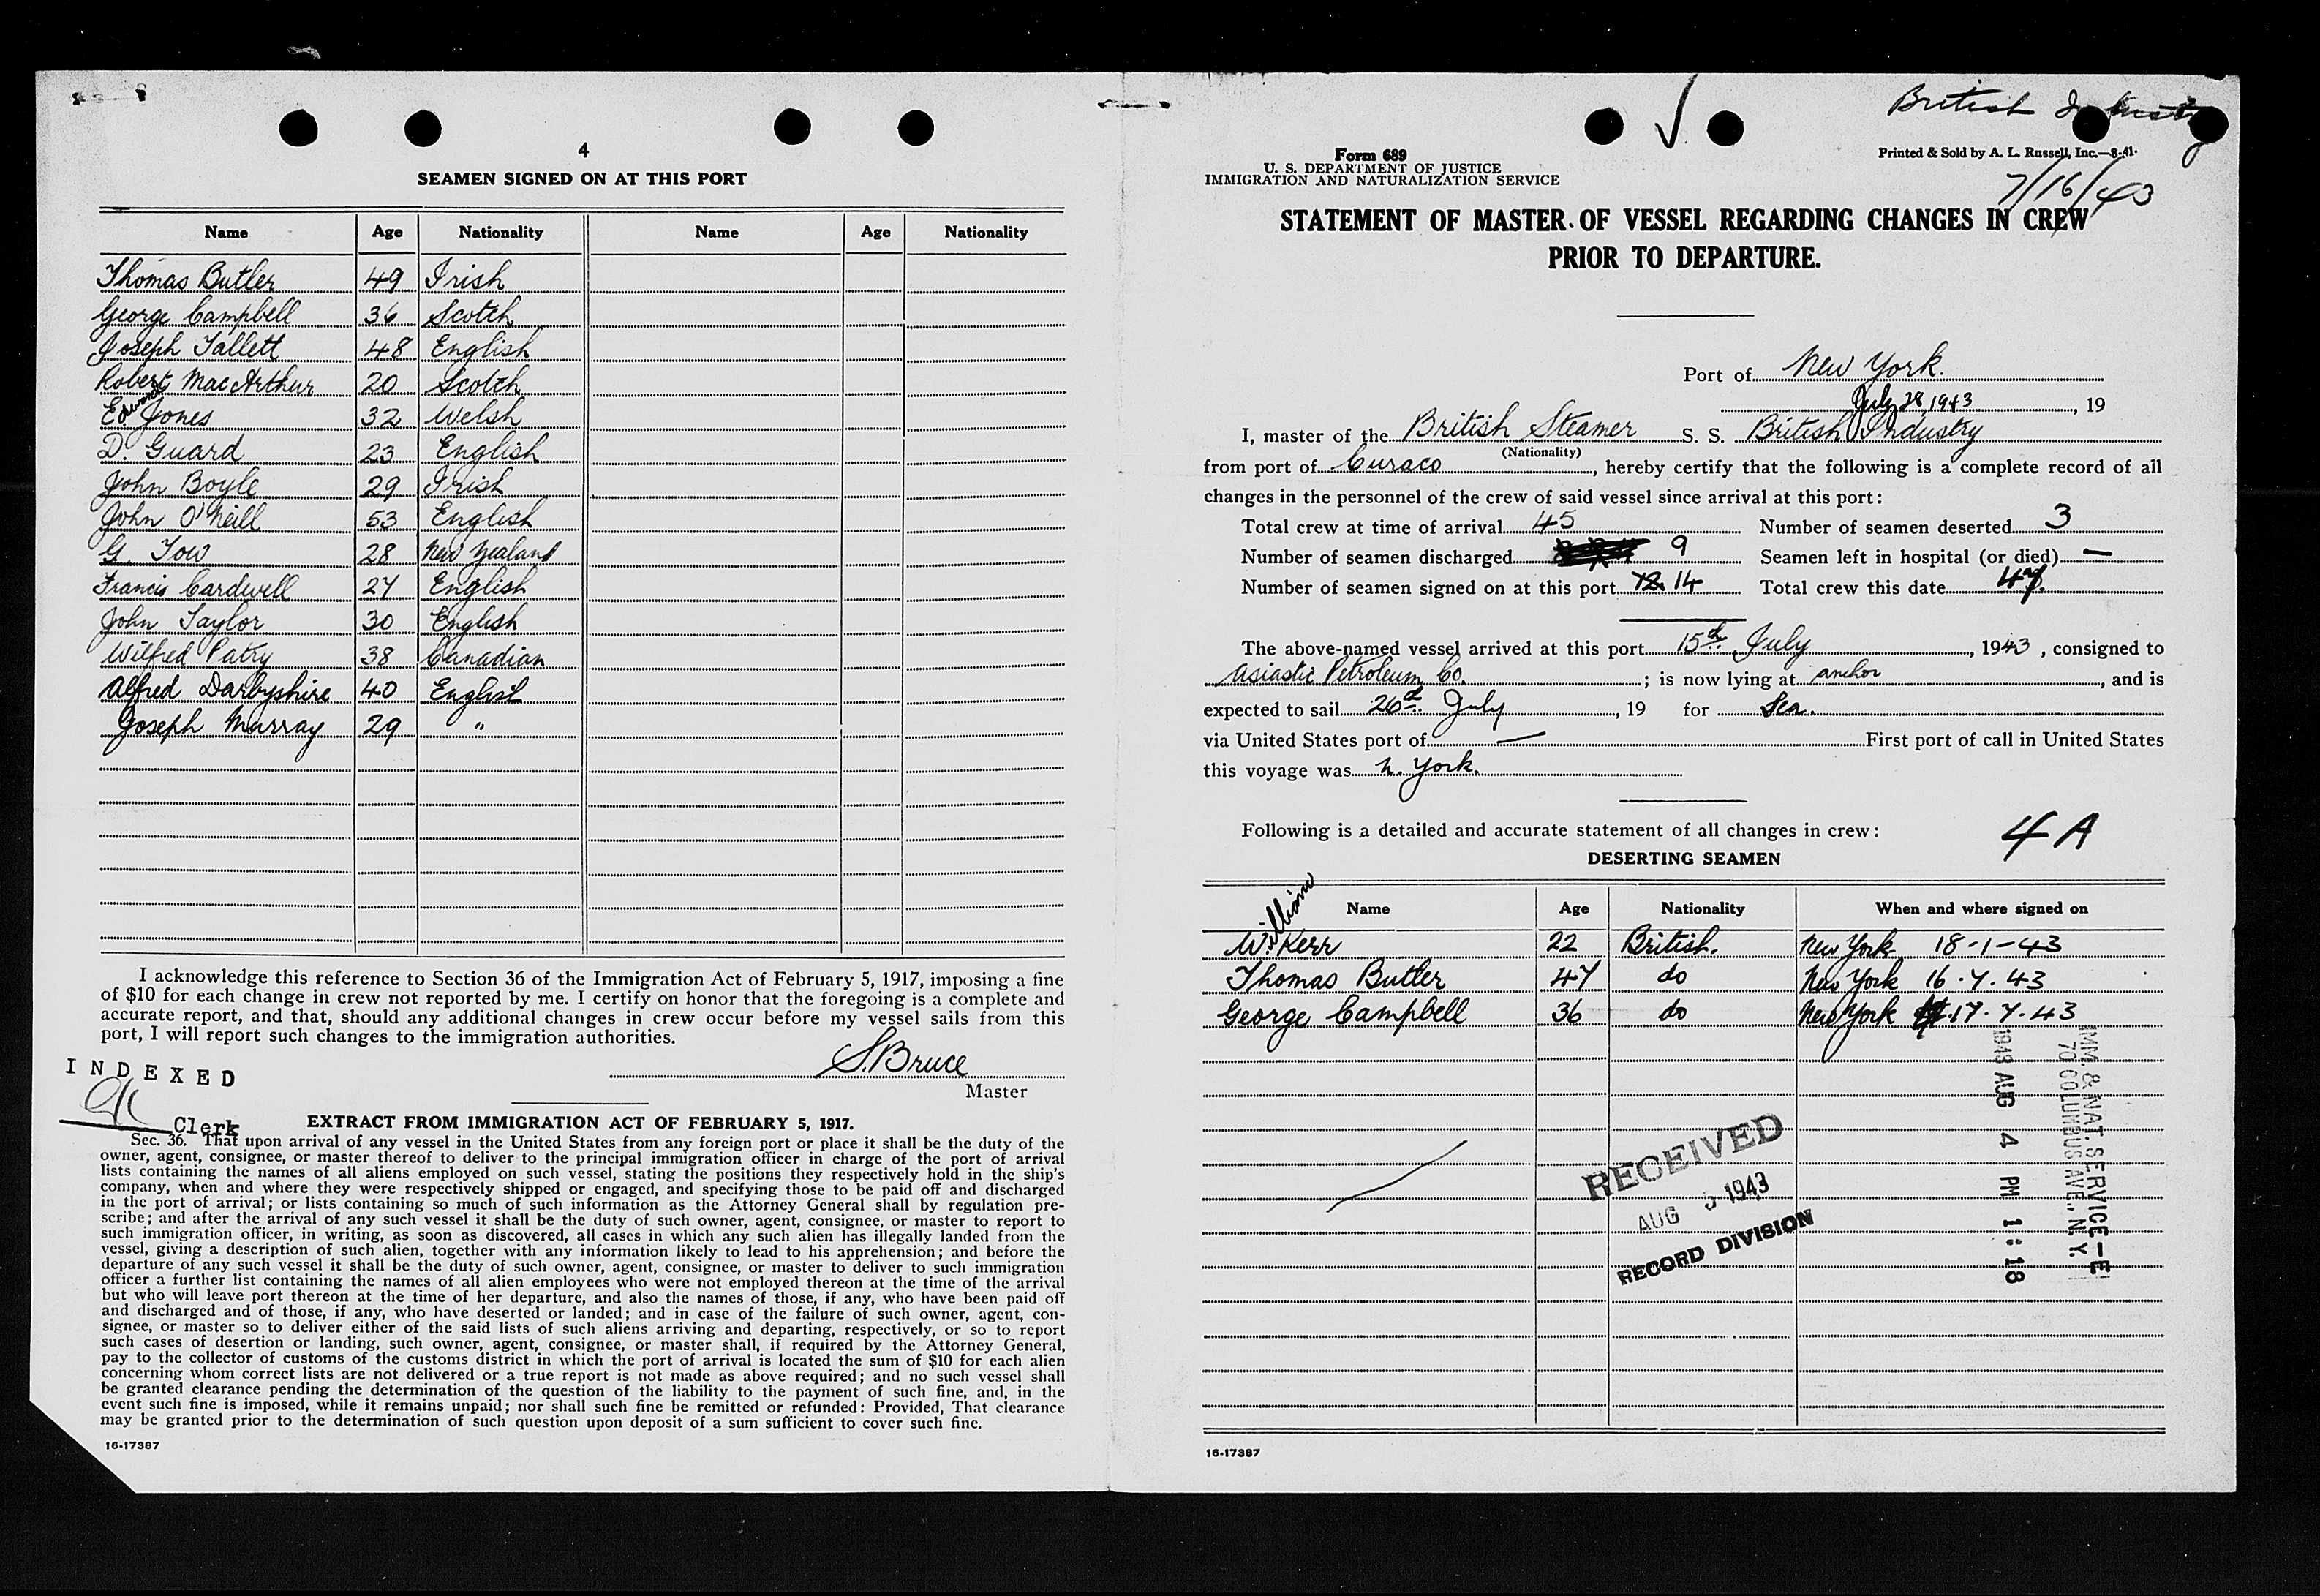 4
SEAMEN SIGNED ON AT THIS PORT
Name Age Nationality Name Age Nationality
Thomas Butler 49 Irish
George Campbell 36 Scotch
Joseph Tallett 48 English
Robert MacArthur 20 Scotch
Edward Jones 32 Welsh
D. Guard 23 English
John Boyle 29 Irish
John O'Neill 53 English
G. Tow 28 New Zealand
Francis Cardwell 27 English
John Taylor 30 English
Wilfred Patry 38 Canadian
Alfred Darbyshire 40 English
Joseph Murray 29 "
I acknowledge this reference to Section 36 of the Immigration Act of February 5, 1917, imposing a fine
of $10 for each change in crew not reported by me. I certify on honor that the foregoing is a complete and
accurate report, and that, should any additional changes in crew occur before my vessel sails from this
port, I will report such changes to the immigration authorities.
S. Bruce
Master
INDEXED
Clerk
EXTRACT FROM IMMIGRATION ACT OF FEBRUARY 5, 1917.
Sec. 36. That upon arrival of any vessel in the United States from any foreign port or place it shall be the duty of the
owner, agent, consignee, or master thereof to deliver to the principal immigration officer in charge of the port of arrival
lists containing the names of all aliens employed on such vessel, stating the positions they respectively hold in the ship's
company, when and where they were respectively shipped or engaged, and specifying those to be paid off and discharged
in the port of arrival; or lists containing so much of such information as the Attorney General shall by regulation pre-
scribe; and after the arrival of any such vessel it shall be the duty of such owner, agent, consignee, or master to report to
such immigration officer, in writing, as soon as discovered, all cases in which any such alien has illegally landed from the
vessel, giving a description of such alien, together with any information likely to lead to his apprehension; and before the
departure of any such vessel it shall be the duty of such owner, agent, consignee, or master to deliver to such immigration
officer a further list containing the names of all alien employees who were not employed thereon at the time of the arrival
but who will leave port thereon at the time of her departure, and also the names of those, if any, who have been paid off
and discharged and of those, if any, who have deserted or landed; and in case of the failure of such owner, agent, con-
signee, or master so to deliver either of the said lists of such aliens arriving and departing, respectively, or so to report
such cases of desertion or landing, such owner, agent, consignee, or master shall, if required by the Attorney General,
pay to the collector of customs of the customs district in which the port of arrival is located the sum of $10 for each alien
concerning whom correct lists are not delivered or a true report is not made as above required; and no such vessel shall
be granted clearance pending the determination of the question of the liability to the payment of such fine, and, in the
event such fine is imposed, while it remains unpaid; nor shall such fine be remitted or refunded: Provided, That clearance
may be granted prior to the determination of such question upon deposit of a sum sufficient to cover such fine.
16-17387
British Industry
Form 689
U. S. DEPARTMENT OF JUSTICE
IMMIGRATION AND NATURALIZATION SERVICE
Printed & Sold by A. L. Russell, Inc.—8-41.
7/16/43
STATEMENT OF MASTER OF VESSEL REGARDING CHANGES IN CREW
PRIOR TO DEPARTURE.
Port of New York.
July 28, 1943, 19
I, master of the British Steamer S. S. British Industry
(Nationality)
from port of Curaco, hereby certify that the following is a complete record of all
changes in the personnel of the crew of said vessel since arrival at this port:
Total crew at time of arrival 45 Number of seamen deserted 3
Number of seamen discharged 9 Seamen left in hospital (or died) —
Number of seamen signed on at this port 12 14 Total crew this date 47.
The above-named vessel arrived at this port 15th July, 1943, consigned to
Asiastic Petroleum Co.; is now lying at anchor, and is
expected to sail 26th July, 19 for Sea.
via United States port of — First port of call in United States
this voyage was N. York.
Following is a detailed and accurate statement of all changes in crew:
4 A
DESERTING SEAMEN
Name Age Nationality When and where signed on
William
W. Kerr 22 British. New York 18-1-43
Thomas Butler 47 do New York 16.7.43
George Campbell 36 do New York 17.7.43
RECEIVED
AUG 5 1943
RECORD DIVISION
1943 AUG 4 PM 1:18
IMM. & NAT. SERVICE-E
70 COLUMBUS AVE., N.Y.
16-17387